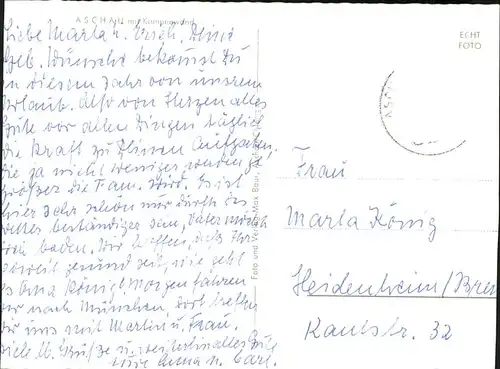 ASCHAU mit Kampenwand
Liebe Marta u. Erich. Deine
Geb. Wünsche bekommst Du
in diesem Jahr von unserem
Urlaub. Also von Herzen alles
Gute vor allen Dingen täglich
die Kraft zu Deinen Aufgaben,
die ja nicht weniger werden je
größer die Fam. wird. Es ist
hier sehr schön nur dürfte das
Wetter beständiger sein, Vater
baden. Wir hoffen, daß Ihr
soweit gesund seid, wie geht
es Oma König? Morgen fahren
wir nach München, dort treffen
wir uns mit Martin u. Frau.
Viele h. Grüße u. weiterhin alles Gute
Eure Anna u. Carl.
Foto und Verlag Max Baur,
ECHT
FOTO
ASCH
Frau
Marta König
Heidenheim/Bren
Kantstr. 32